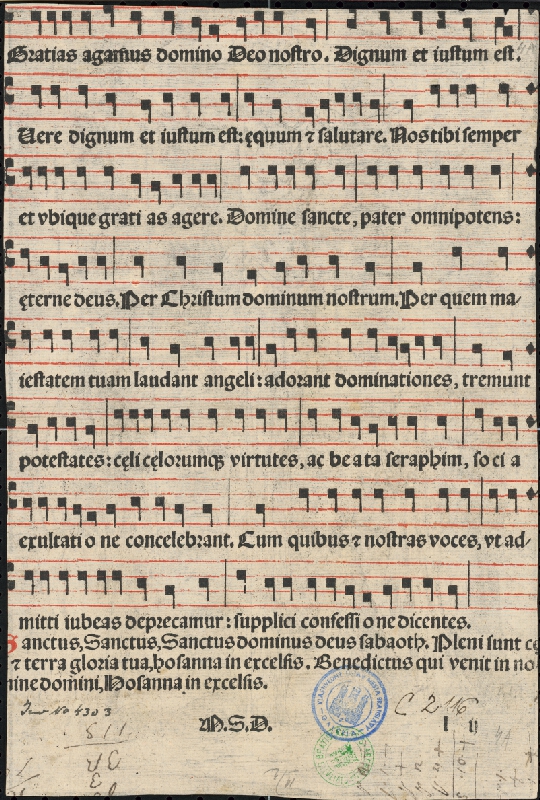 Gratias agamus domino Deo nostro. Dignum et iustum est.
Uere dignum et iustum est: ęquum ⁊ salutare. Nos tibi semper
et vbique grati as agere. Domine sancte, pater omnipotens:
ęterne deus. Per Christum dominum nostrum. Per quem ma/
iestatem tuam laudant angeli: adorant dominationes, tremunt
potestates: cęli cęlorumqꝫ virtutes, ac be a ta seraphim, so ci a
exultati o ne concelebrant. Cum quibus ⁊ nostras voces, vt ad/
mitti iubeas deprecamur: supplici confessi o ne dicentes.
Sanctus, Sanctus, Sanctus dominus deus sabaoth. Pleni sunt cę
⁊ terra gloria tua, hosanna in excelsis. Benedictus qui venit in no
mine domini, Hosanna in excelsis.
M.S.D.
C 216